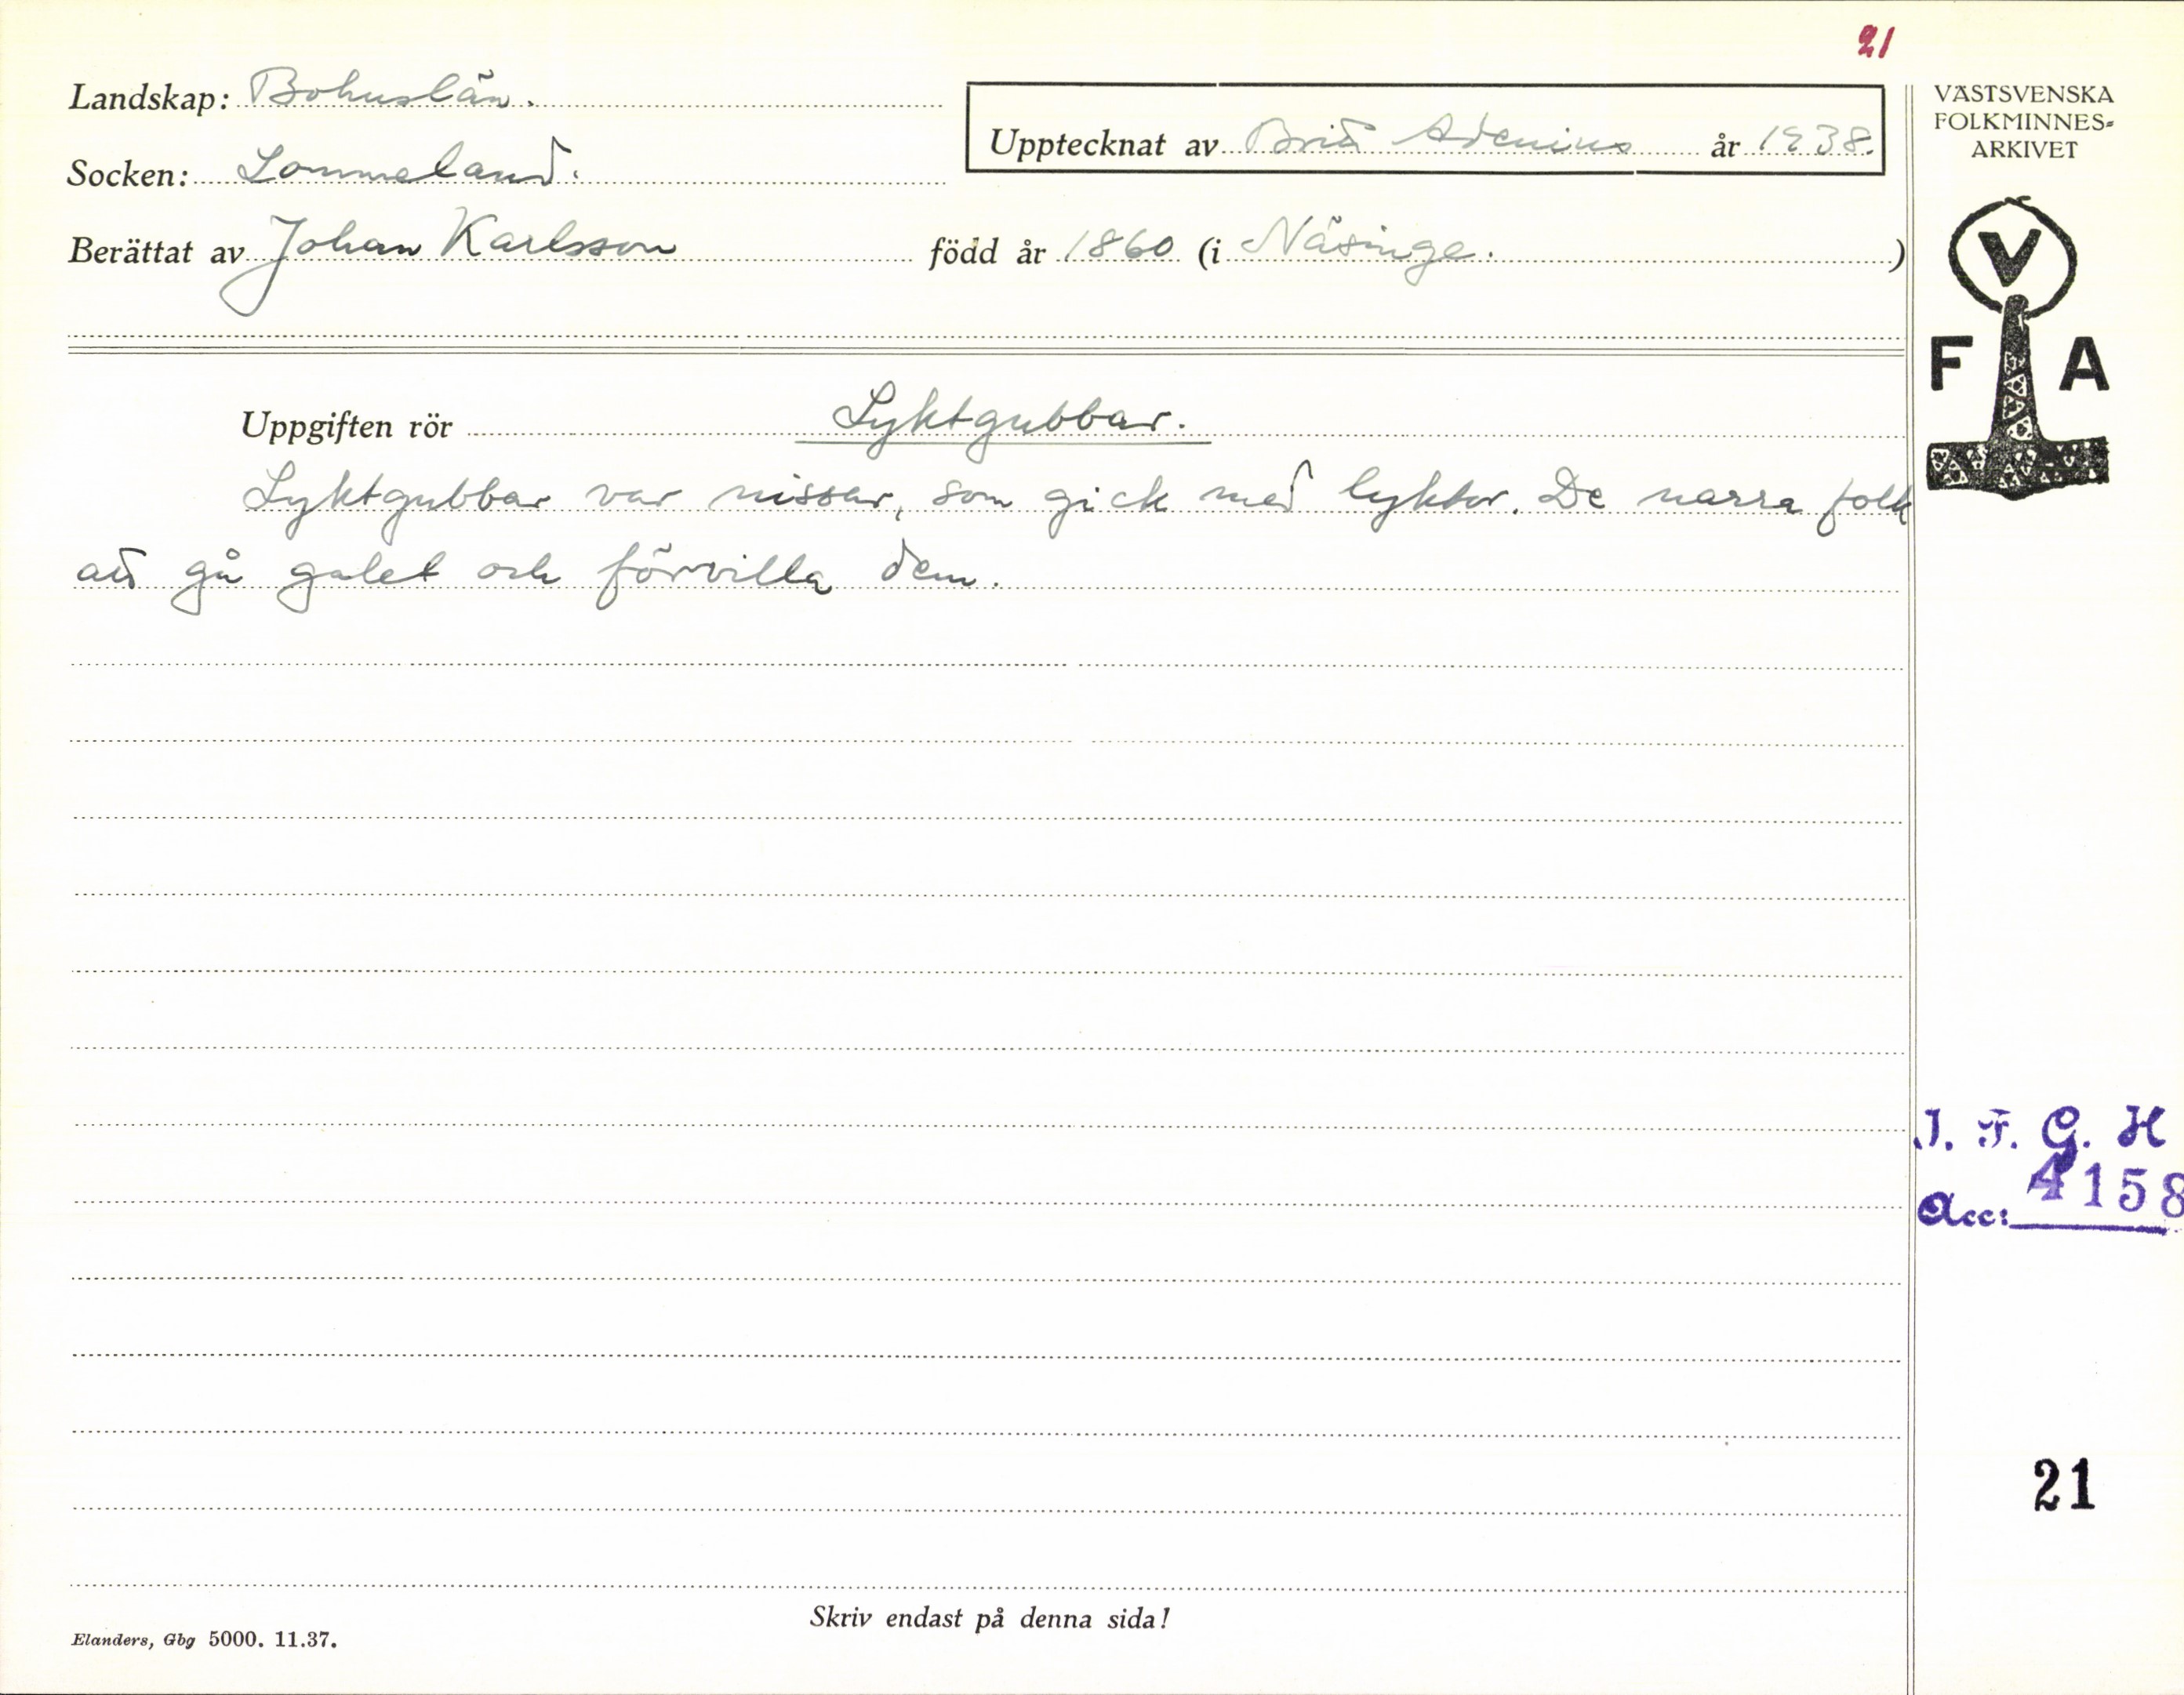 21
Landskap: Bohuslän.
Upptecknat av Brita Adenius år 1938.
Socken: Lommeland.
Berättat av Johan Karlsson född år 1860 (i Näsinge. )
VÄSTSVENSKA
FOLKMINNES-
ARKIVET
V
F A
Uppgiften rör Lyktgubbar.
Lyktgubbar var nissar, som gick med lyktor. De narra folk
att gå galet och förvilla dem.
I. F. G. H
Acc: 4158
21
Skriv endast på denna sida!
Elanders, Gbg 5000. 11.37.